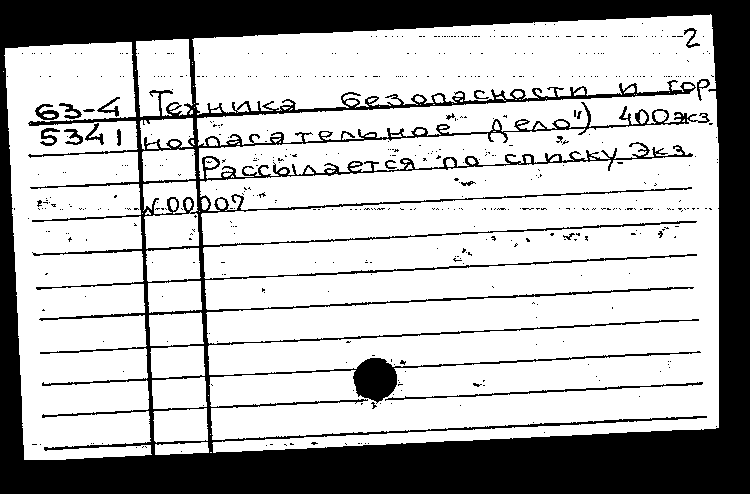 2
63-4 „Техника безопасности и гор-
5341 носпасательное дело") 400экз.
Рассылается по списку. Экз.
№00007